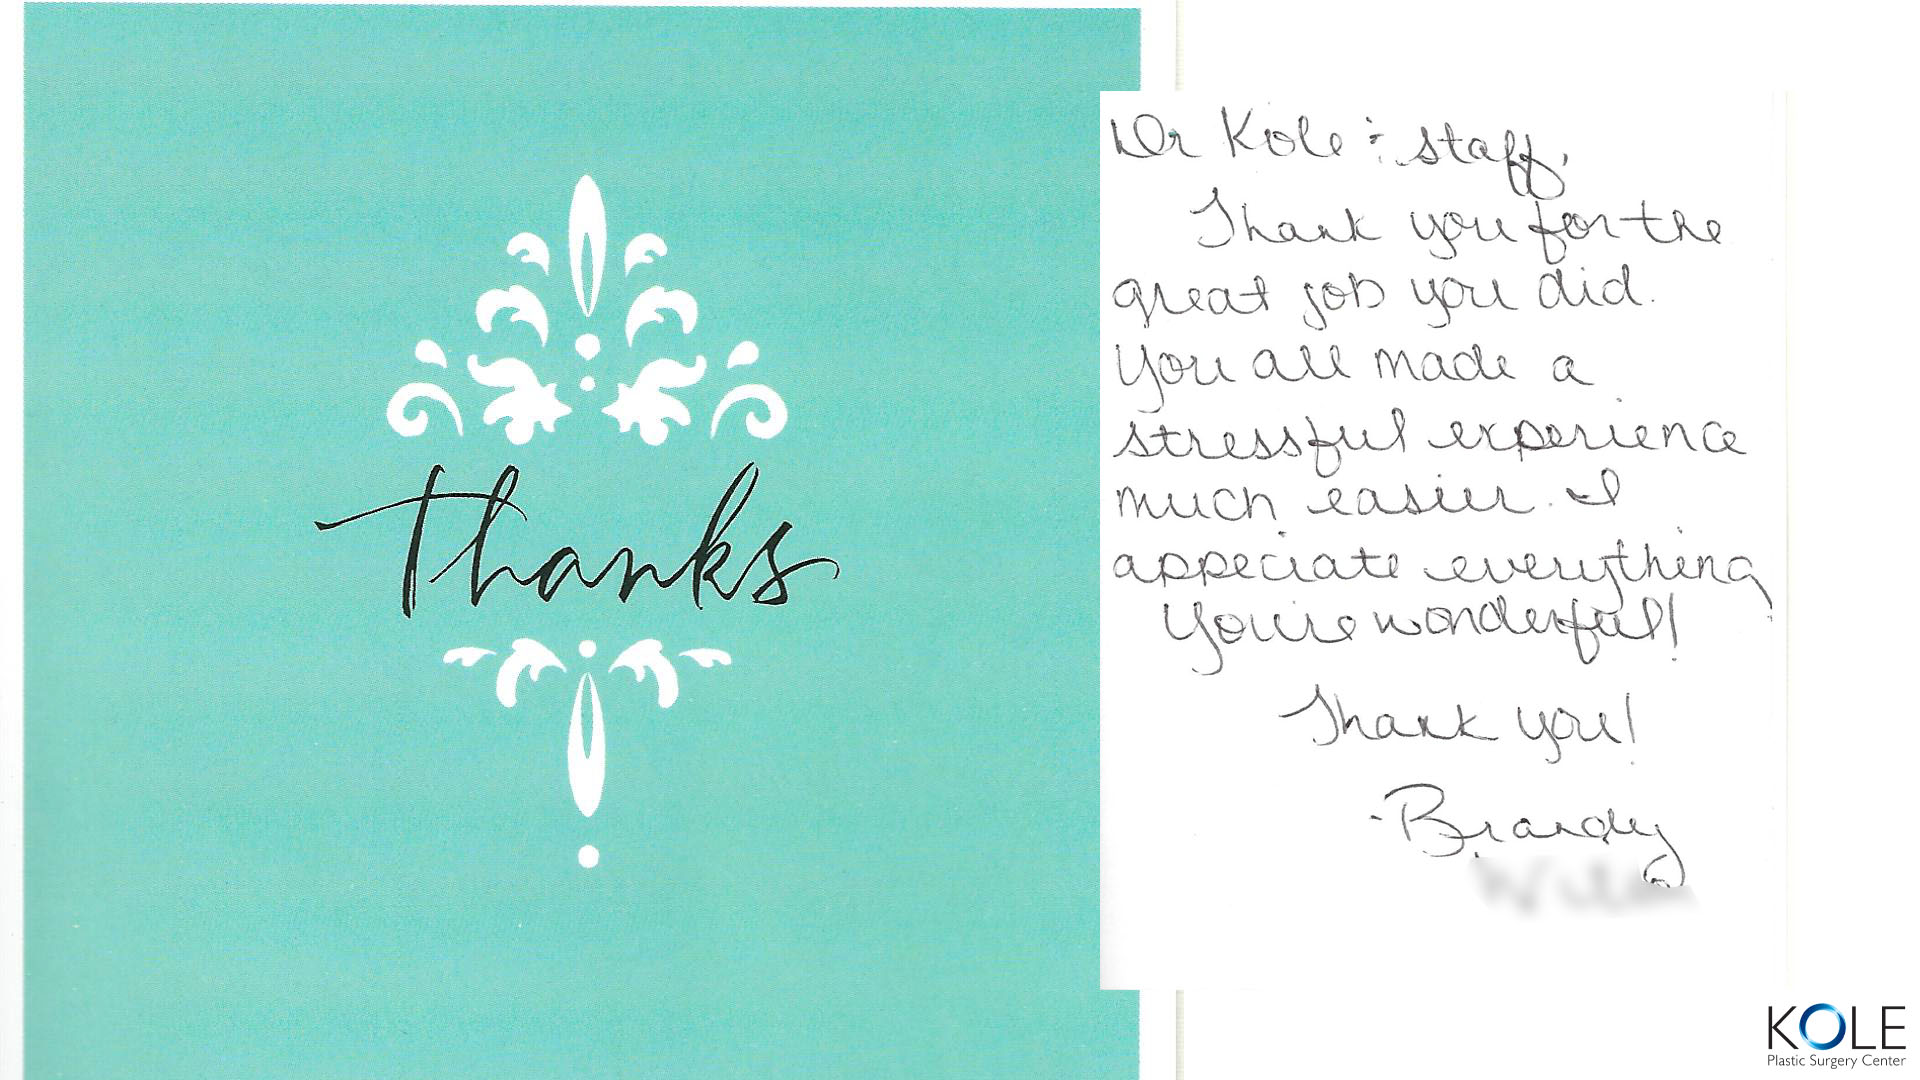 Thanks
Dr Kole & staff,
Thank you for the
great job you did.
You all made a
stressful experience
much easier. I
appeciate everything
You're wonderful!
Thank you!
-Brandy
KOLE
Plastic Surgery Center